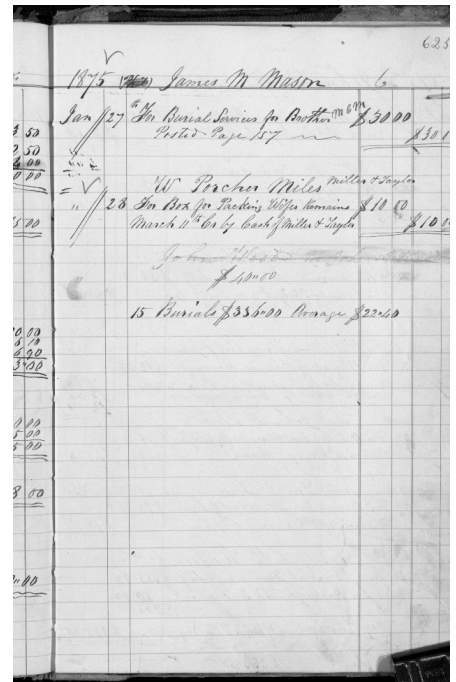 623
1875 James M Mason 6
Jan 27th For Burial Services for Brother M & M $30 00
Posted Page 157 $30 0
W Porcher Miles Miller & Taylor
" 28 For Box for Packing Wifes Remains $10 00
March 11th Cr by Cash of Miller & Taylor $10 0
John Wood
$40"00
15 Burials $336"00 Average $22"40
3 50
2 50
6 00
0 00
5 00
0 00
6 10
6 90
3"00
0 00
5 00
5 00
8 00
"00